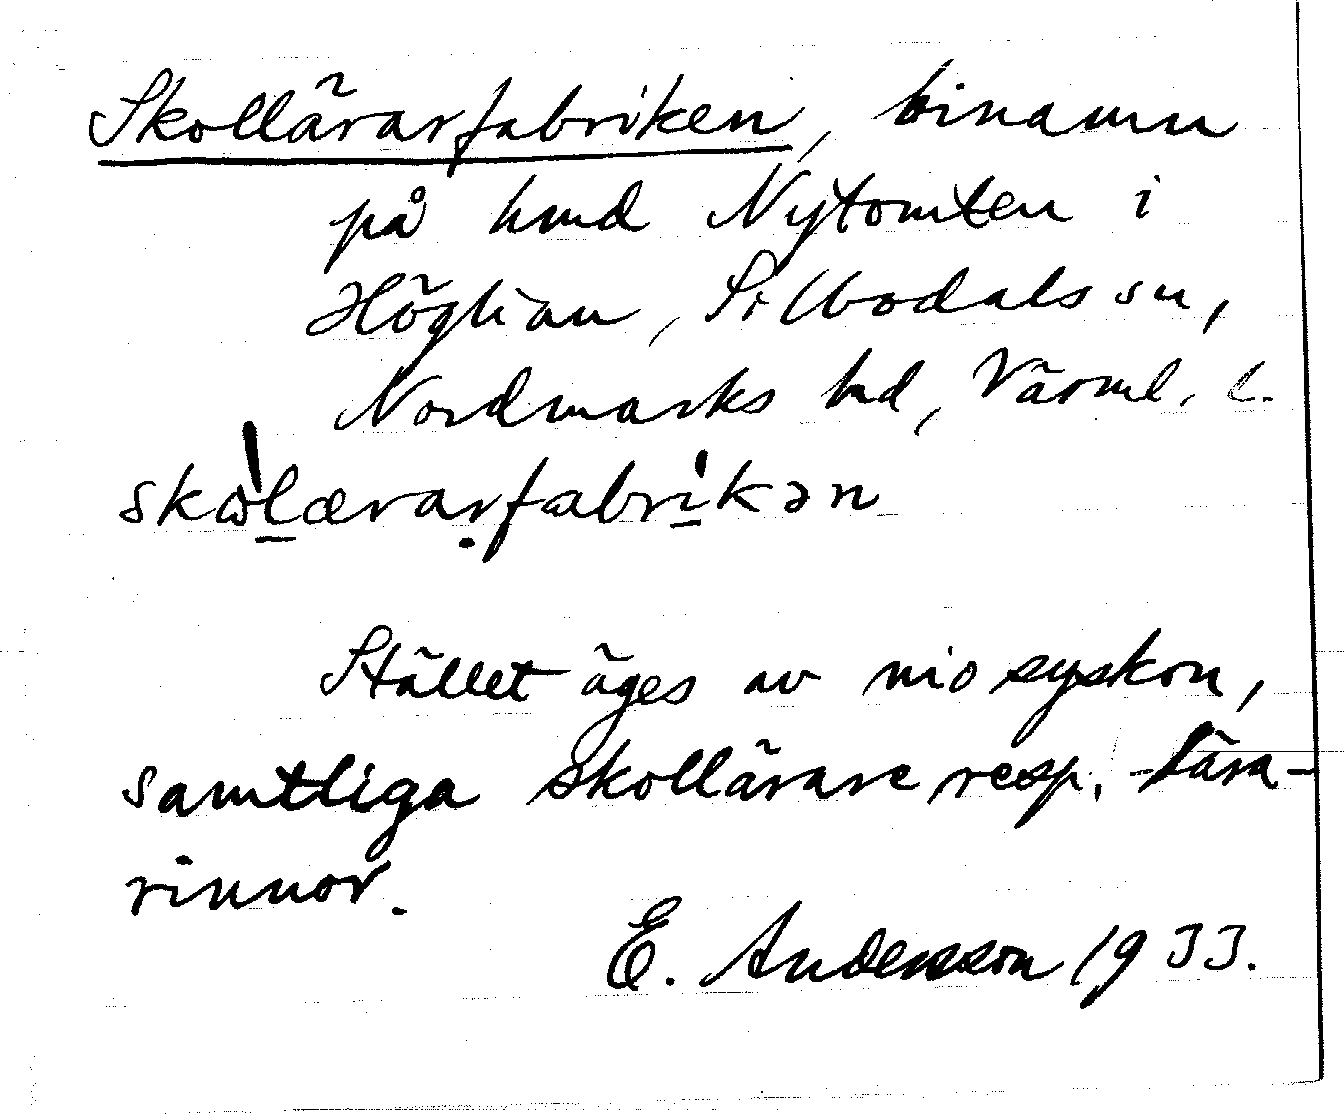 Skollärarfabriken, binamn
på hmd Nytomten i
Höglian, Silbodals sn,
Nordmarks hd, Värml. l.
skωlærarfabrikən
Stället äges av nio syskon,
samtliga skollärare resp. -lära-
rinnor.
E. Andersson 1933.